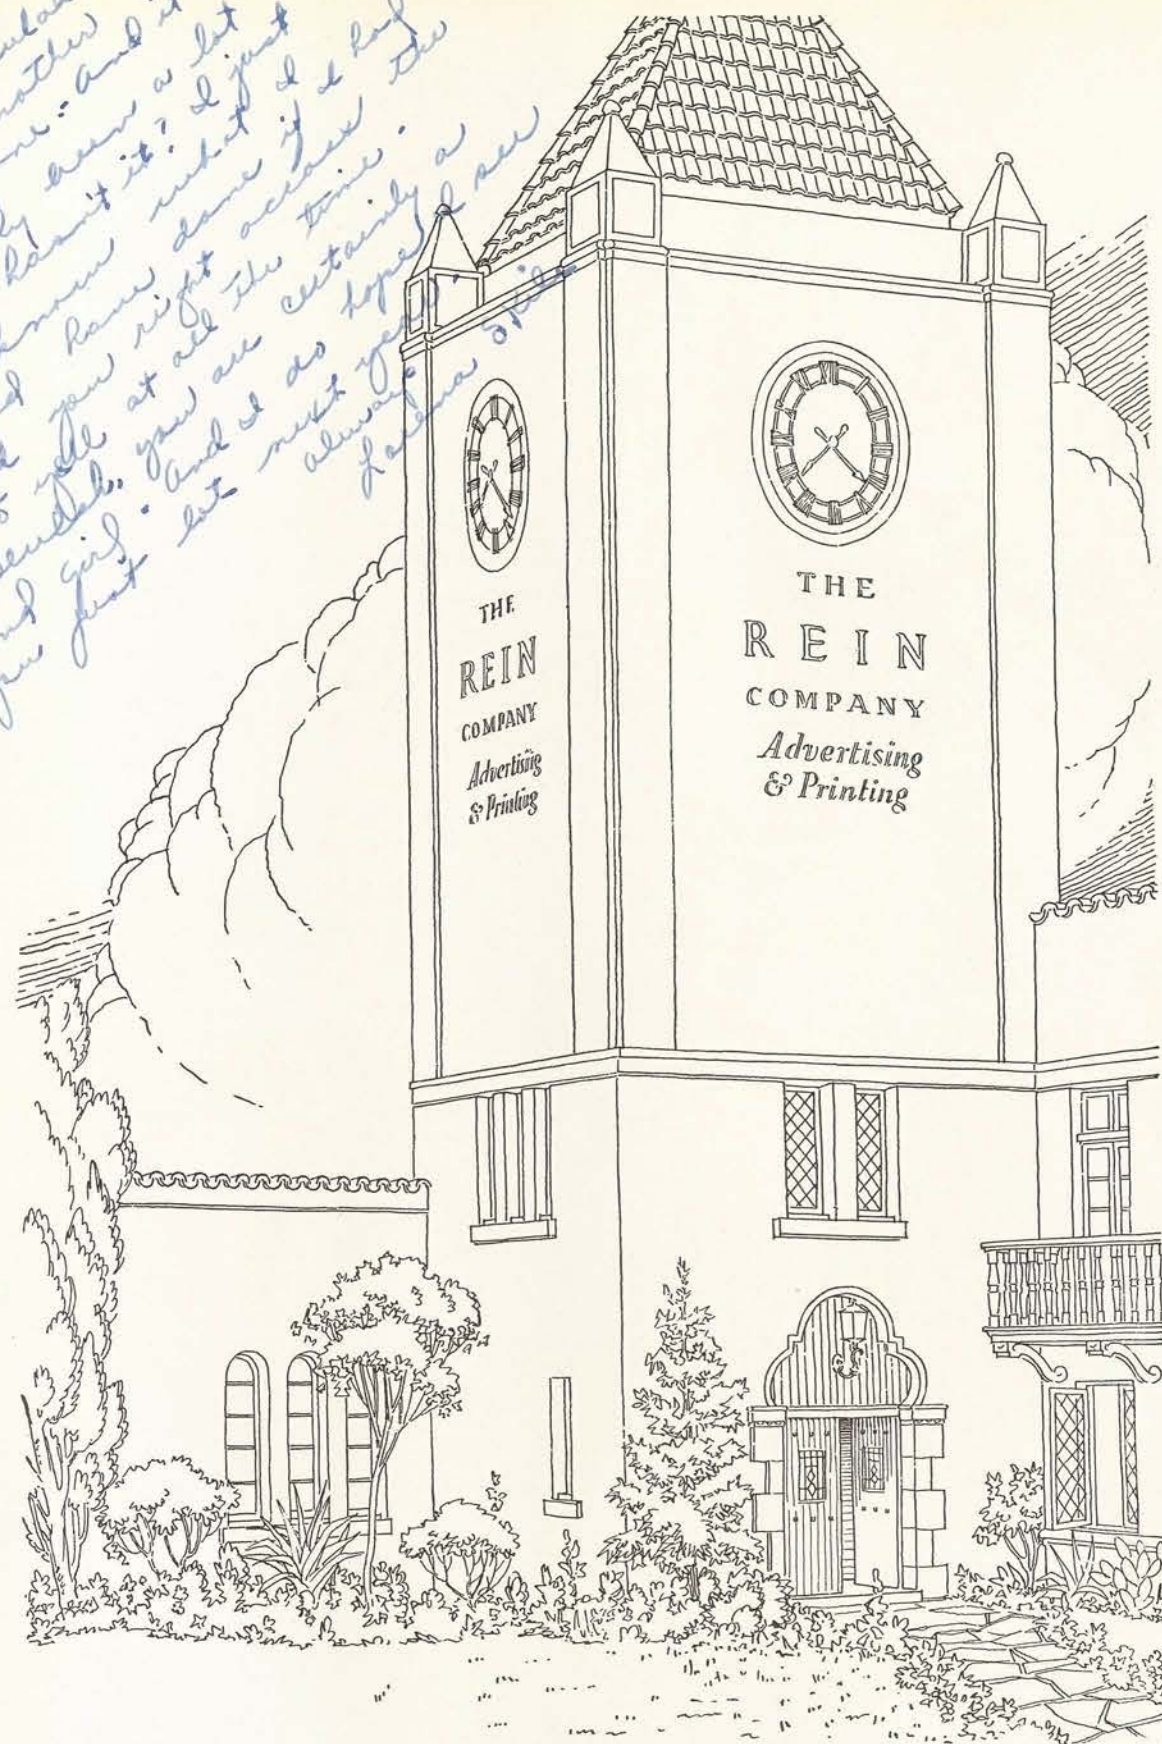 and it
been a lot
hasn't it? I just
know what I
have done if I
you right across the
yell at all the time.
you are certainly a
girl. And I do hope I see
just lot next year.
always
Lorena
THE
REIN
COMPANY
Advertising
& Printing
THE
REIN
COMPANY
Advertising
& Printing